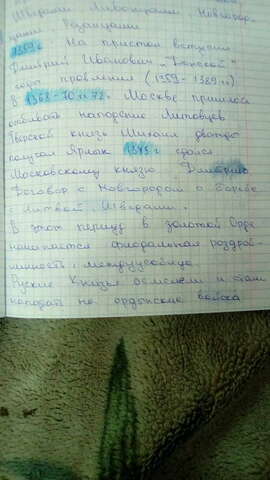 Шведами Ливонцами, Новгород-
цами, Рязанцами.
1359г. На престол вступил
Дмитрий Иванович "Донской"
годы правления (1359-1389 гг)
В 1368-70 и 72. Москве пришлось
отбивать нападение Литовцев
Тверской князь Михаил дважды
получал Ярлык 1375 г сдался
Московскому князю Дмитрию
Договор с Новгородом о борьбе
с Литвой, Шведами.
В этот период в золотой Орде
начинается феодальная раздроб-
ленность, междуусобица.
Руские Князья осмелели и стали
нападать на ордынские войска